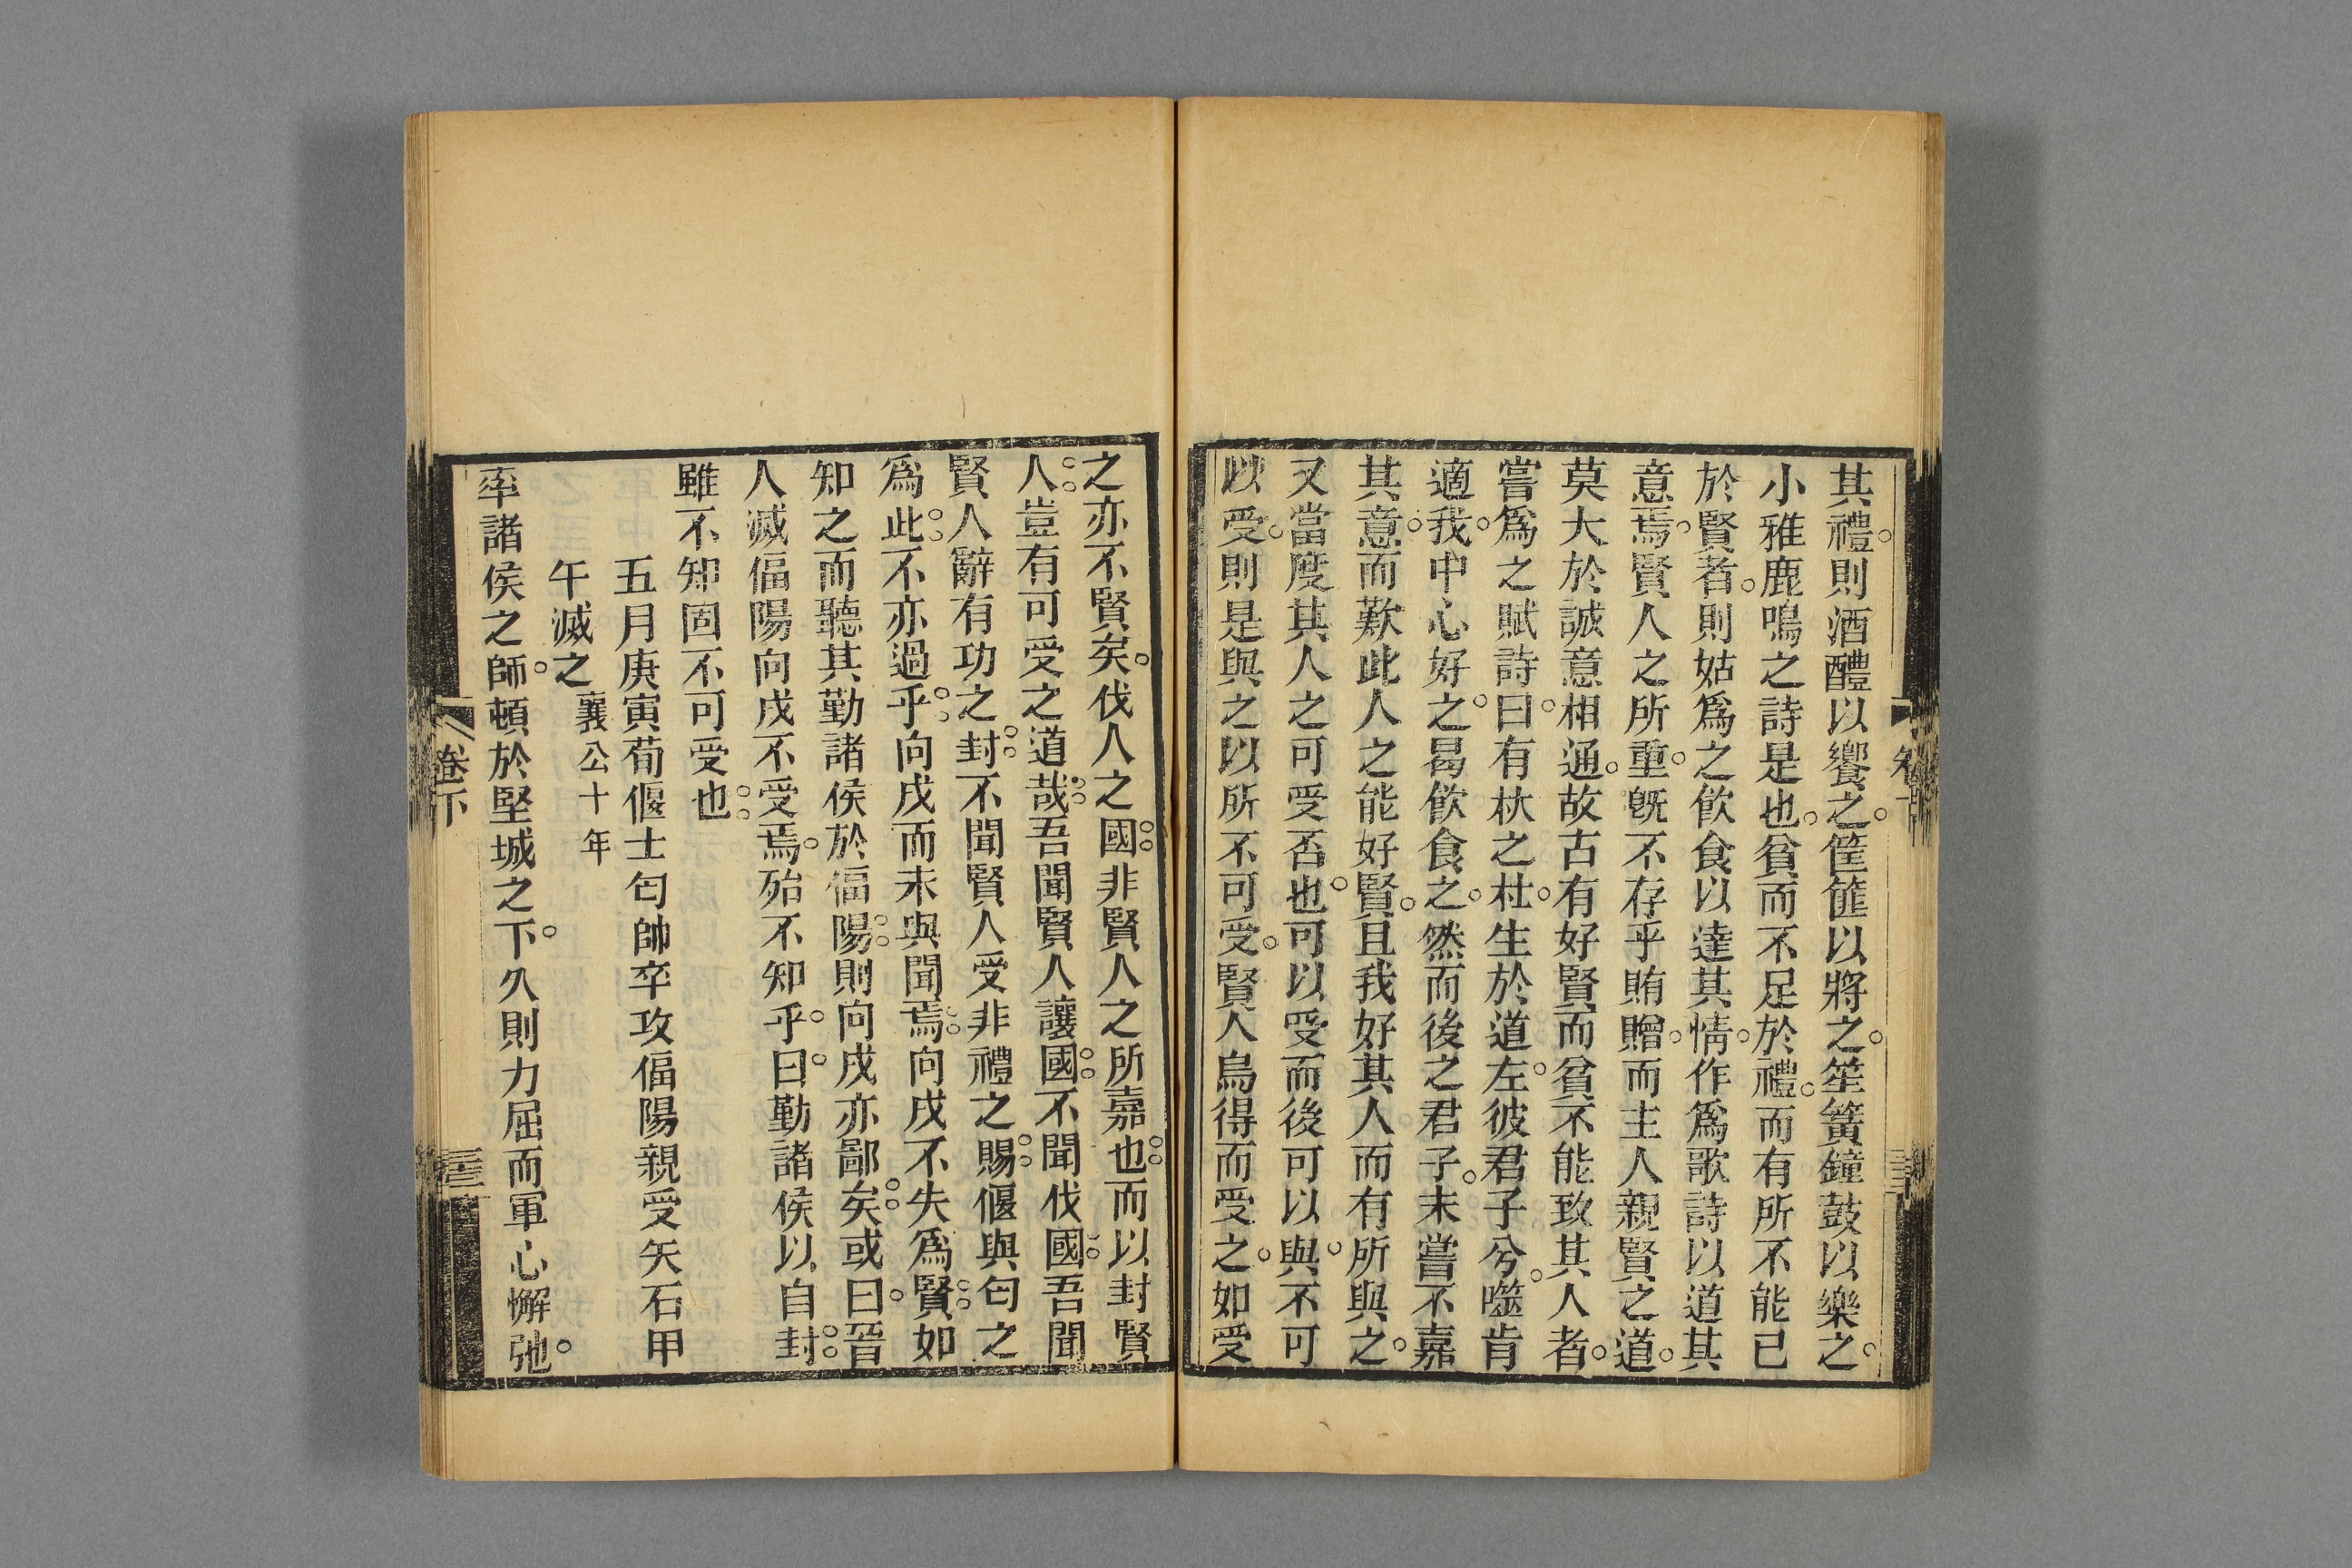 其禮則酒醴以饗之筐篚以將之笙簧鐘鼓以樂之
小雅鹿鳴之詩是也貧而不足於禮而有所不能已
於賢者則姑爲之飲食以達其情作爲歌詩以道其
意焉賢人之所重旣不存乎賄贈而主人親賢之道
莫大於誠意相通故古有好賢而貧不能致其人者
嘗爲之賦詩曰有杕之杜生於道左彼君子兮噬肯
適我中心好之曷飲食之然而後之君子未嘗不嘉
其意而歎此人之能好賢且我好其人而有所與之
又當度其人之可受否也可以受而後可以與不可
以受則是與之以所不可受賢人烏得而受之如受
之亦不賢矣伐人之國非賢人之所嘉也而以封賢
人豈有可受之道哉吾聞賢人讓國不聞伐國吾聞
賢人辭有功之封不聞賢人受非禮之賜偃與匄之
爲此不亦過乎向戌而未與聞焉向戌不失爲賢如
知之而聽其勤諸侯於偪陽則向戌亦鄙矣或曰晉
人滅偪陽向戌不受焉殆不知乎曰勤諸侯以自封
雖不知固不可受也
五月庚寅荀偃士匄帥卒攻偪陽親受矢石甲
午滅之 襄公十年
率諸侯之師頓於堅城之下久則力屈而軍心懈弛
卷下